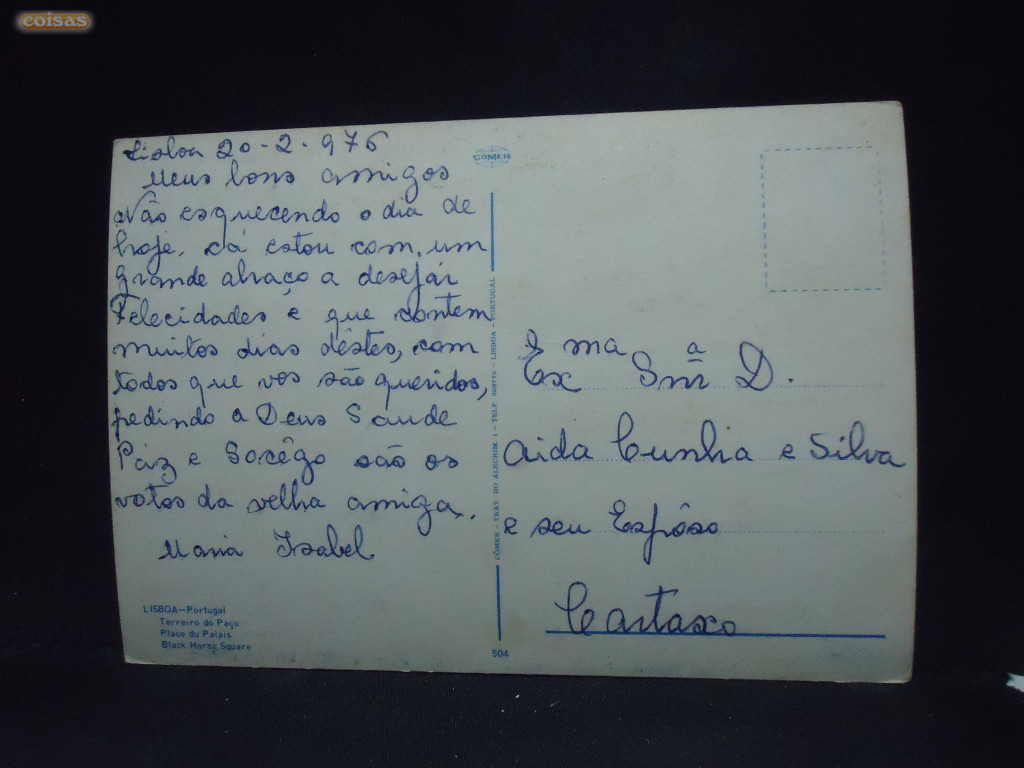 coisas
Lisboa 20-2-976
Meus bons amigos
Não esquecendo o dia de
hoje, cá estou com um
grande abraço a desejár
Felecidades e que contem
muitos dias dêstes, com
todos que vos são queridos,
pedindo a Deus Saude
Páz e Socêgo são os
votos da velha amiga,
Maria Isabel
LISBOA—Portugal
Terreiro do Paço
Place du Palais
Black Horse Square
COMER
CÔMER - TRAV. DO ALECRIM, 1 - TELF. - LISBOA - PORTUGAL
504
Exma Snrª D.
Aida Cunha e Silva
e seu Espôso
Cartaxo